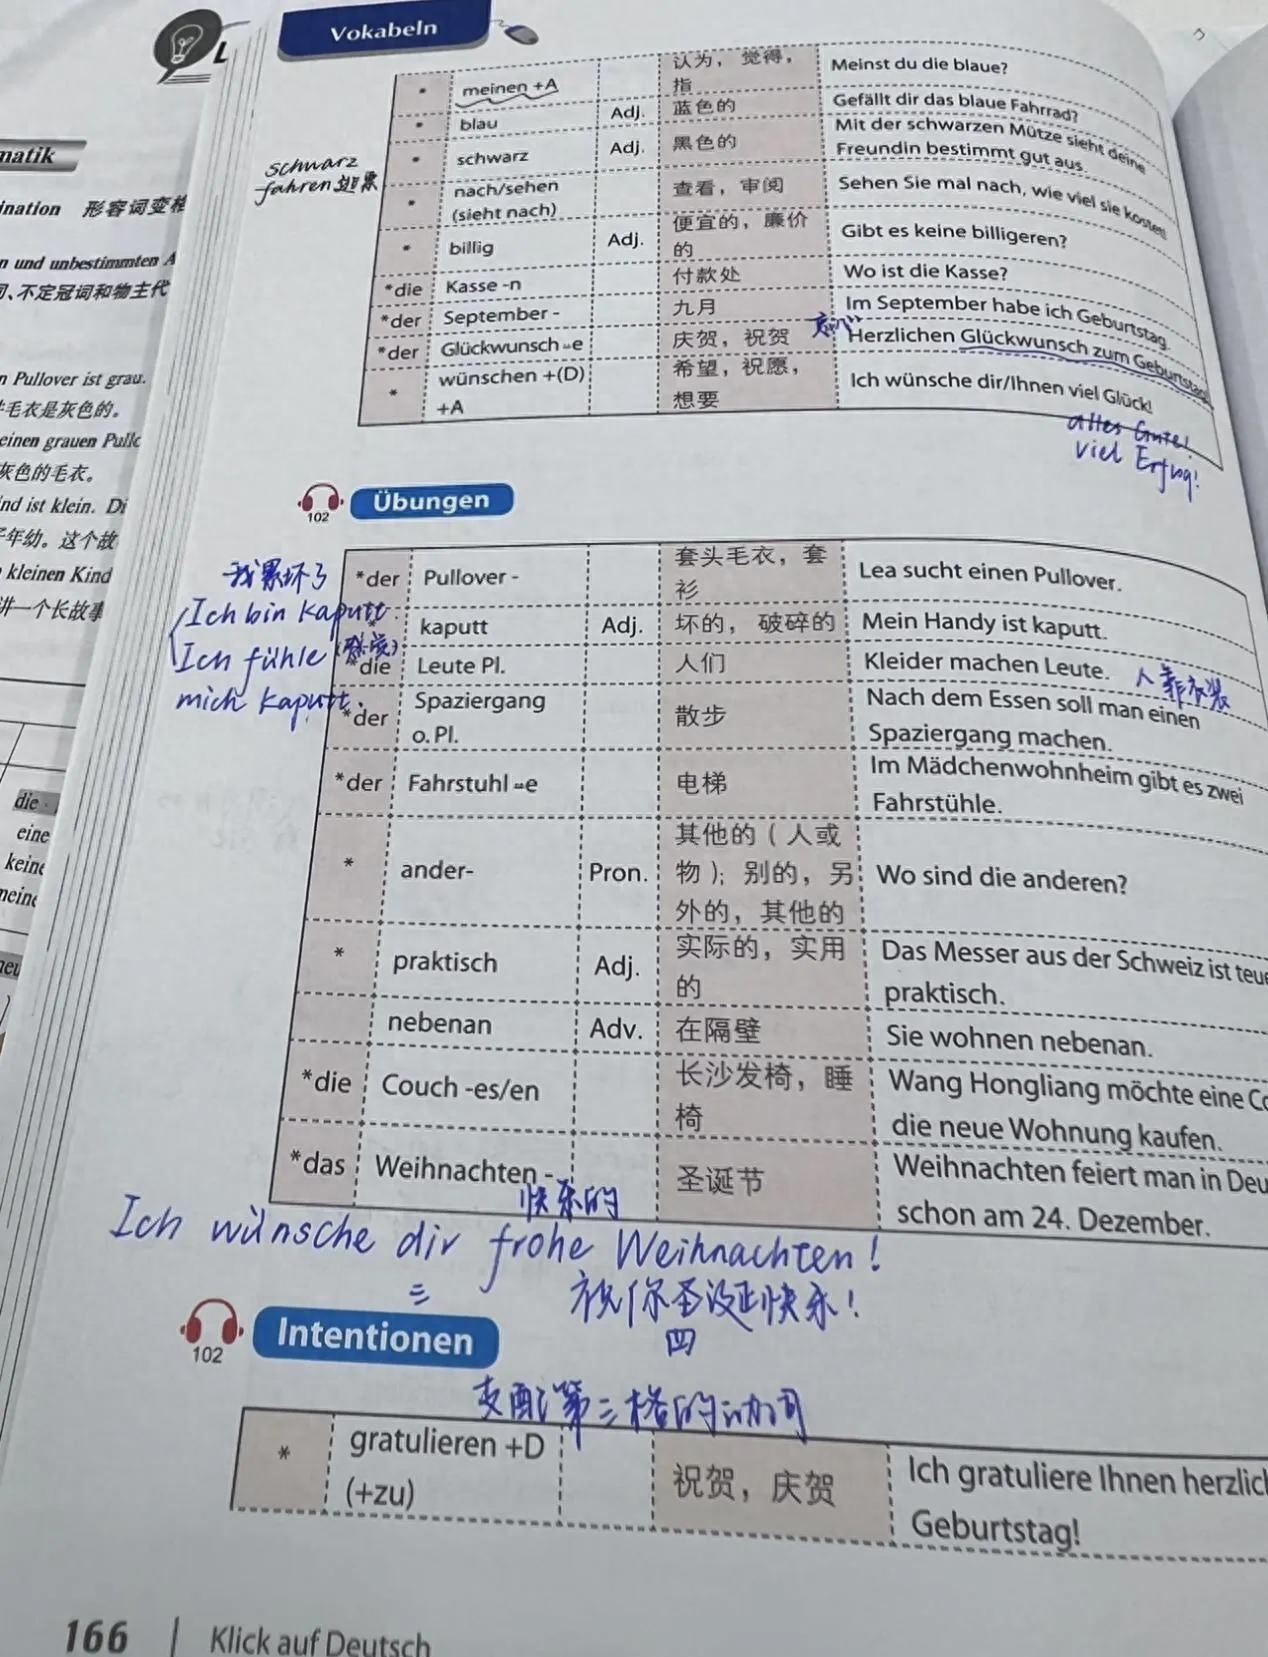 Vokabeln
matik
ination 形容词变格
n und unbestimmten A
司、不定冠词和物主代
n Pullover ist grau.
毛衣是灰色的。
einen grauen Pullo
灰色的毛衣。
nd ist klein. Di
年幼。这个故
kleinen Kind
讲一个长故事
die
eine
keine
meine
neu
* meinen +A 认为，觉得，指 Meinst du die blaue?
* blau Adj. 蓝色的 Gefällt dir das blaue Fahrrad?
schwarz
fahren 逃票
* schwarz Adj. 黑色的 Mit der schwarzen Mütze sieht deine
Freundin bestimmt gut aus.
* nach/sehen
(sieht nach) 查看，审阅 Sehen Sie mal nach, wie viel sie kosten!
* billig Adj. 便宜的，廉价的 Gibt es keine billigeren?
*die Kasse -n 付款处 Wo ist die Kasse?
*der September - 九月 Im September habe ich Geburtstag.
*der Glückwunsch ⸚e 庆贺，祝贺 Herzlichen Glückwunsch zum Geburtstag!
* wünschen +(D)
+A 希望，祝愿，想要 Ich wünsche dir/Ihnen viel Glück!
alles Gute!
viel Erfolg!
102 Übungen
我累坏了
Ich bin kaputt.
Ich fühle (感觉)
mich kaputt.
*der Pullover - 套头毛衣，套衫 Lea sucht einen Pullover.
* kaputt Adj. 坏的，破碎的 Mein Handy ist kaputt.
*die Leute Pl. 人们 Kleider machen Leute. 人靠衣装
*der Spaziergang
o. Pl. 散步 Nach dem Essen soll man einen
Spaziergang machen.
*der Fahrstuhl ⸚e 电梯 Im Mädchenwohnheim gibt es zwei
Fahrstühle.
* ander- Pron. 其他的（人或物）；别的，另外的，其他的 Wo sind die anderen?
* praktisch Adj. 实际的，实用的 Das Messer aus der Schweiz ist teue
praktisch.
nebenan Adv. 在隔壁 Sie wohnen nebenan.
*die Couch -es/en 长沙发椅，睡椅 Wang Hongliang möchte eine Co
die neue Wohnung kaufen.
*das Weihnachten - 圣诞节 Weihnachten feiert man in Deu
schon am 24. Dezember.
快乐的
Ich wünsche dir frohe Weihnachten!
三 祝你圣诞快乐！
四
102 Intentionen
支配第三格的动词
* gratulieren +D
(+zu) 祝贺，庆贺 Ich gratuliere Ihnen herzlich
Geburtstag!
166 | Klick auf Deutsch